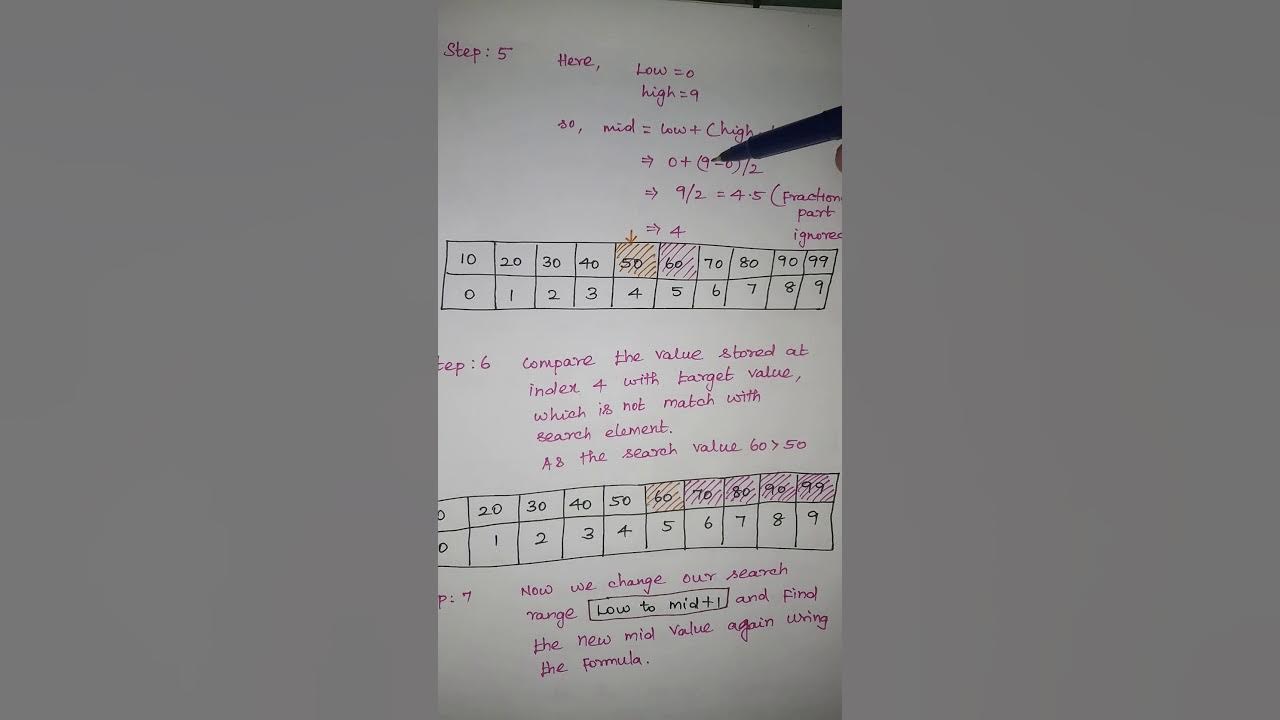 Step: 5 Here, Low = 0
high = 9
so, mid = low + (high
⇒ 0 + (9-0)/2
⇒ 9/2 = 4.5 (Fraction
part
ignored
⇒ 4
10 20 30 40 50 60 70 80 90 99
0 1 2 3 4 5 6 7 8 9
tep: 6 Compare the value stored at
index 4 with target value,
which is not match with
search element.
As the search value 60 > 50
0 20 30 40 50 60 70 80 90 99
0 1 2 3 4 5 6 7 8 9
p: 7 Now we change our search
range Low to mid+1 and Find
the new mid value again using
the Formula.